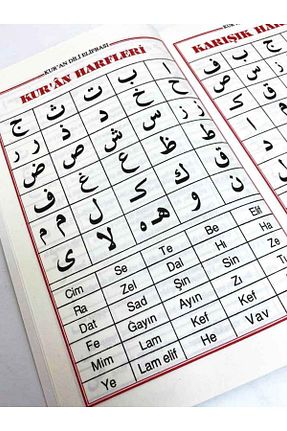 KUR'AN DİLİ ELİFBASI
KUR'ÂN HARFLERİ
ا ب ت ث ج
ح خ د ذ ر
ز س ش ص ض
ط ظ ع غ ف
ق ك ك ل م
ن و ه لا ى
Cim Se Te Be Elif
Ra Zel Dal Hı Ha
Dat Sad Şın Sin Ze
Fe Gayın Ayın Zı
Mim Lam Kef Kef
Ye Lam elif He Vav
KARIŞIK